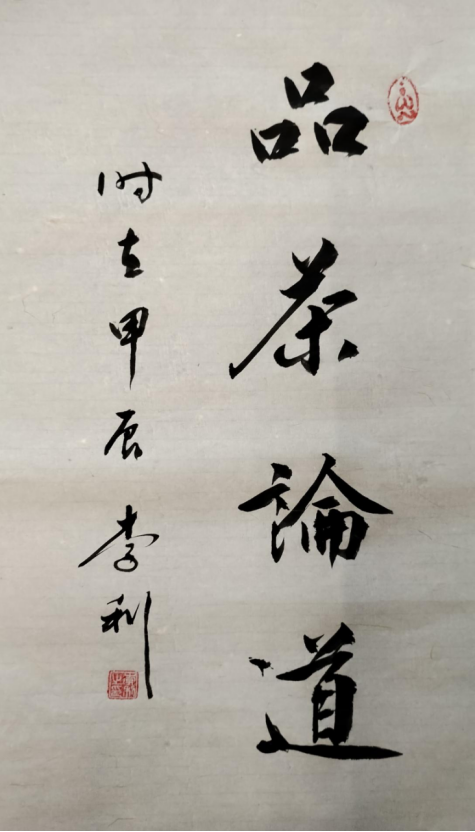 品茶論道
时在甲辰李利